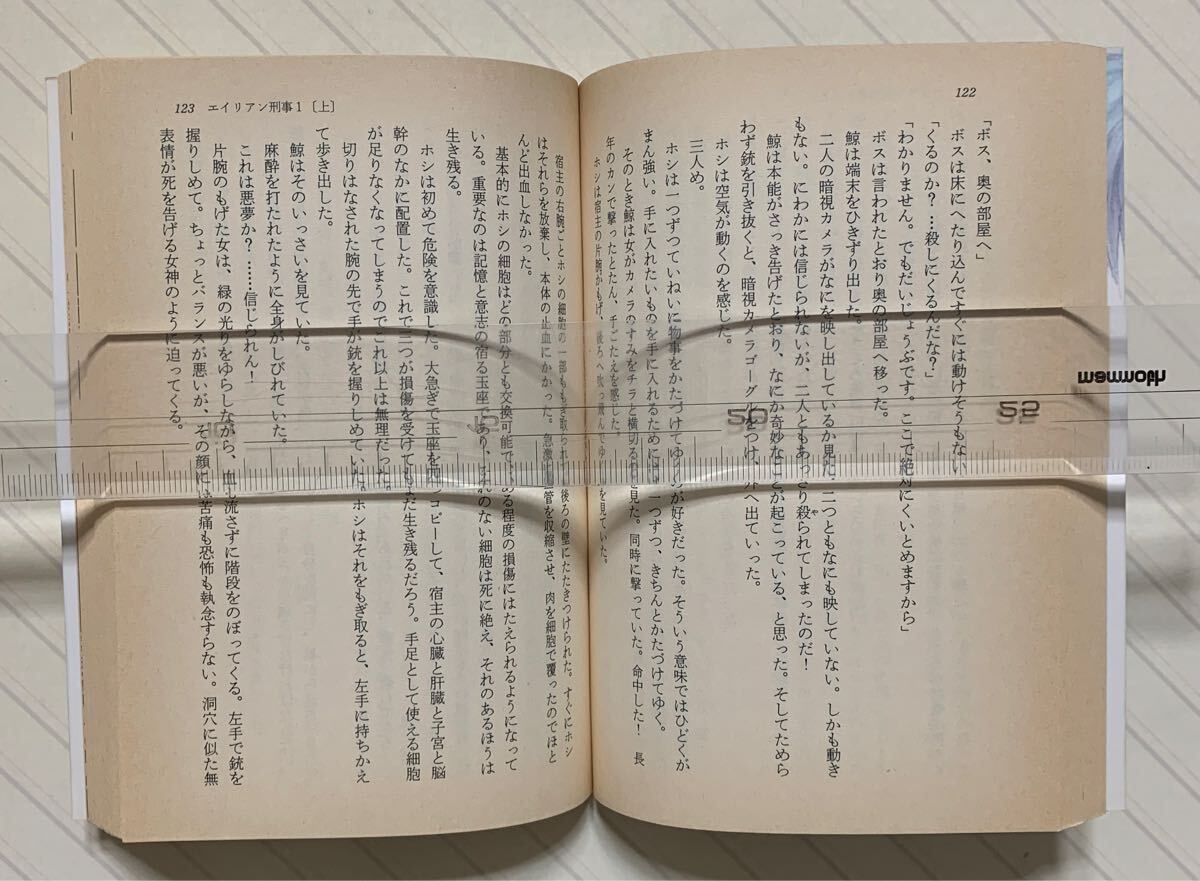 122
「ボス、奥の部屋へ」
ボスは床にへたり込んですぐには動けそうもない
「くるのか？…殺しにくるんだな？」
「わかりません。でもだいじょうぶです。ここで絶対にくいとめますから」
ボスは言われたとおり奥の部屋へ移った。
鯨は端末をひきずり出した。
二人の暗視カメラがなにを映し出しているか見た。二つともなにも映していない。しかも動き
もない。にわかには信じられないが、二人ともあっさり殺られてしまったのだ！
や
鯨は本能がさっき告げたとおり、なにか奇妙なことが起こっている、と思った。そしてためら
わず銃を引き抜くと、暗視カメラゴーグルをつけ、外へ出ていった。
ホシは空気が動くのを感じた。
三人め。
ホシは一つずつていねいに物事をかたづけてゆくのが好きだった。そういう意味ではひどくが
まん強い。手に入れたいものを手に入れるためには一つずつ、きちんとかたづけてゆく。
そのとき鯨は女がカメラのすみをチラと横切るのを見た。同時に撃っていた。命中した！　長
年のカンで撃ったとたん、手ごたえを感じた。
ホシは宿主の片腕がもげ、後ろへ吹っ飛んでゆくのを見ていた。
123 エイリアン刑事1〔上〕
宿主の右腕ごとホシの細胞の一部ももぎ取られて後ろの壁にたたきつけられた。すぐにホシ
はそれらを放棄し、本体の止血にかかった。急激に血管を収縮させ、肉を細胞で覆ったのでほと
んど出血しなかった。
基本的にホシの細胞はどの部分とも交換可能で、ある程度の損傷にはたえられるようになって
いる。重要なのは記憶と意志の宿る玉座であり、それのない細胞は死に絶え、それのあるほうは
生き残る。
ホシは初めて危険を意識した。大急ぎで玉座を四つコピーして、宿主の心臓と肝臓と子宮と脳
幹のなかに配置した。これで三つが損傷を受けてもまだ生き残るだろう。手足として使える細胞
が足りなくなってしまうのでこれ以上は無理だった。
切りはなされた腕の先で手が銃を握りしめていた。ホシはそれをもぎ取ると、左手に持ちかえ
て歩き出した。
鯨はそのいっさいを見ていた。
麻酔を打たれたように全身がしびれていた。
これは悪夢か？……信じられん！
片腕のもげた女は、緑の光りをゆらしながら、血も流さずに階段をのぼってくる。左手で銃を
握りしめて。ちょっとバランスが悪いが、その顔には苦痛も恐怖も執念すらない。洞穴に似た無
表情が死を告げる女神のように迫ってくる。
mammoth
50